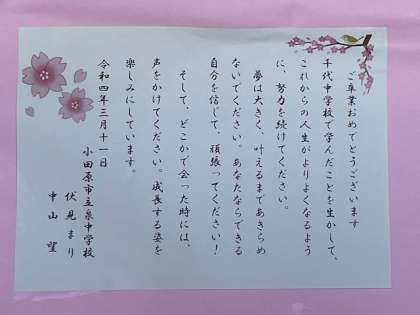 ご卒業おめでとうございます
千代中学校で学んだことを生かして、
これからの人生がよりよくなるよう
に、努力を続けてください。
夢は大きく、叶えるまであきらめ
ないでください。あなたならできる
自分を信じて、頑張ってください！
そして、どこかで会った時には、
声をかけてください。成長する姿を
楽しみにしています。
令和四年三月十一日
小田原市立泉中学校
伏見まり
中山望